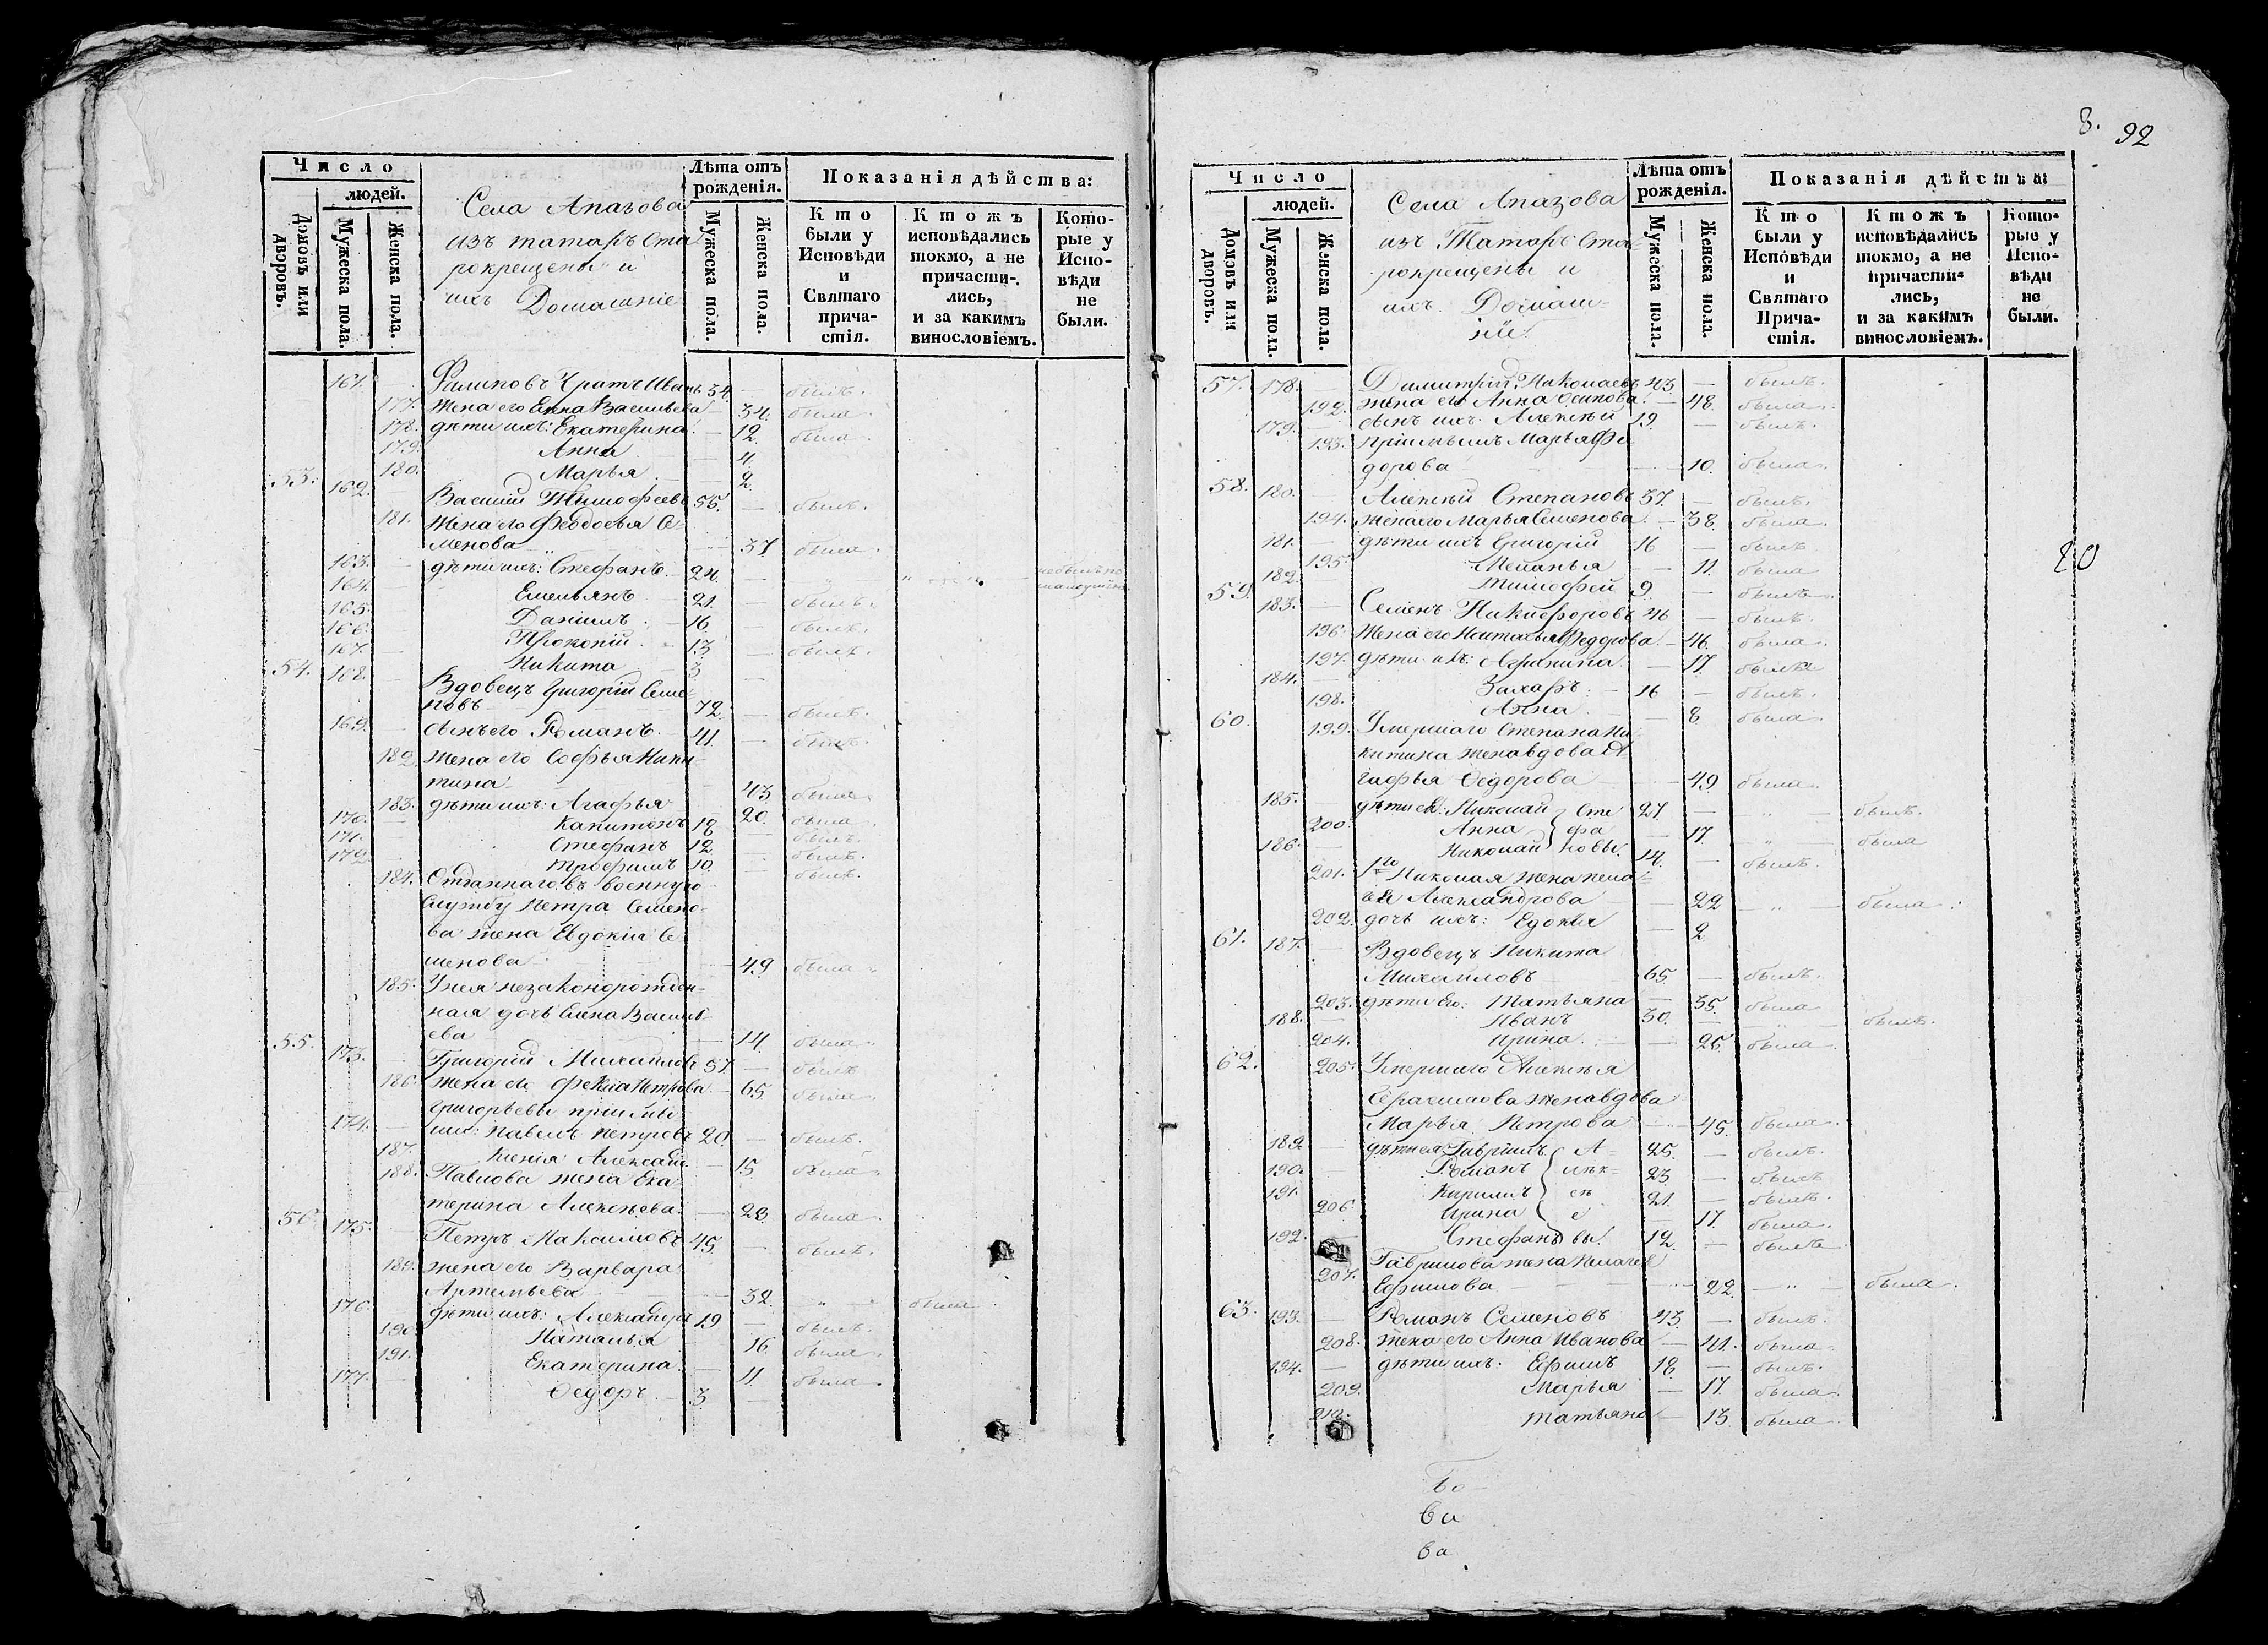 Число
людей.
Домовъ или дворовъ.
Мужеска пола.
Женска пола.
Села Апазова
изъ татаръ Ста
рокрещены и
ихъ Домашніе
Лѣта отъ рожденія.
Мужеска пола.
Женска пола.
Показанія дѣйства:
Кто были у Исповѣди и Святаго причастія.
Ктожъ исповѣдались токмо, а не причастились, и за какимъ винословіемъ.
Которые у Исповѣди не были.
161. — Филиповъ братъ Иванъ 34. — былъ.
177. Жена его Анна Васильева — 34. была
178. дѣти ихъ: Екатерина — 12. была.
179. Анна — 4.
180. Марья — 2.
53. 162. — Василій Тимофеевъ 55. — былъ.
181. Жена его Феодосья Се
менова — 37 была.
163. — дѣти ихъ: Стефанъ 24. — " не былъ по
164. — Емельянъ 21. — былъ.
165. — Даніилъ 16. — былъ.
166. — Прокопій 13 — былъ.
167. — Никита 3 —
54. 168. — Вдовецъ Григорій Семе
новъ 72. — былъ.
169. — сынъ его Романъ 41. — былъ.
182 Жена его Софья Ники
тина — 43 была
183. дѣти ихъ: Агафья — 20. была.
170. — Капитонъ 18 — былъ.
171. — Стефанъ 12. — былъ.
172 — Трофимъ 10. — былъ.
184. Отданнаго въ военную
службу Петра Семено
ва жена Евдокія Се
менова — 49 была
185. У нея незаконорожден
ная дочь Елена Василь
ева — 14. была.
55. 173. — Григорій Михайловъ 57. — былъ
186. жена его Фекла Петрова — 65. была.
Григорьевы пріемы
174. — ши: Павелъ Петровъ 20. — былъ.
187. Ксенія Алексан — 15. была
188. Павлова жена Ека
терина Алексѣева — 23. была.
56. 175. — Петръ Максимовъ 45. — былъ.
189. жена его Варвара
Артемьева — 32. — " была
176. — дѣти ихъ: Александръ 19 — былъ.
190. Наталья — 16. была.
191. Екатерина — 11. была.
177. — Федоръ 3 —
8. 92
Число
людей.
Домовъ или дворовъ.
Мужеска пола.
Женска пола.
Села Апазова
изъ Татаръ Ста
рокрещены и
ихъ Домаш-
ніи.
Лѣта отъ рожденія.
Мужеска пола.
Женска пола.
Показанія дѣйства
Кто были у Исповѣди и Святаго Причастія.
Ктожъ исповѣдались токмо, а не причастились, и за какимъ винословіемъ.
Которые у Исповѣди не были.
57. 178. — Димитрій Николаевъ 43. — былъ.
192. жена его Анна Осипова — 48. была.
179. — сынъ ихъ Алексѣй 19. — былъ.
193. пріемышъ Марья Фе
дорова — 10. была.
58. 180. — Алексѣй Степановъ 37. — былъ.
194. Жена его Марья Семенова — 38. была.
181. — дѣти ихъ Григорій 16 — былъ
195. Меланья — 11. была
182. — Тимофей 9. — былъ.
20
59. 183. — Семенъ Никифоровъ 46 — былъ.
196. Жена его Настасья Федорова — 46. была.
197. дѣти ихъ: Агрипина — 17. была
184. — Захаръ 16 — былъ.
198. Анна — 8. была.
60. 199. Умершаго Степана Ни
китина жена вдова А
гафья Федорова — 49 была.
185. — дѣти ея: Николай Сте 27 — " былъ.
200. Анна фа — 17. " была
186. — Николай новы. 14. — былъ.
201. 1го Николая жена Пела
гея Александрова — 22 — " была.
202. дочь ихъ: Едокія — 2
61. 187. — Вдовецъ Никита
Михайловъ 65. — былъ.
203. дѣти его: Татьяна — 35. была
188. — Иванъ 30. — былъ.
204. Ирина — 25. была
62. 205. Умершаго Алексѣя
Герасимова жена вдова
Марья Петрова — 45. была.
189 — дѣти ея Гавріилъ А- 25. — былъ.
190. — Романъ лек- 23 — былъ
191. — Кирилъ сѣ 21. — былъ.
206. Ирина е — 17. была.
192. — Стефанъ вы. 12. — былъ
207. Гаврилова жена Пелагея
Ефимова — 22. — " была.
63. 193. — Романъ Семеновъ 43. — былъ.
208. жена его Анна Иванова — 41. была.
194. — дѣти ихъ: Ефимъ 18. — былъ.
209. Марья — 17. была.
210. Татьяна — 13. была.